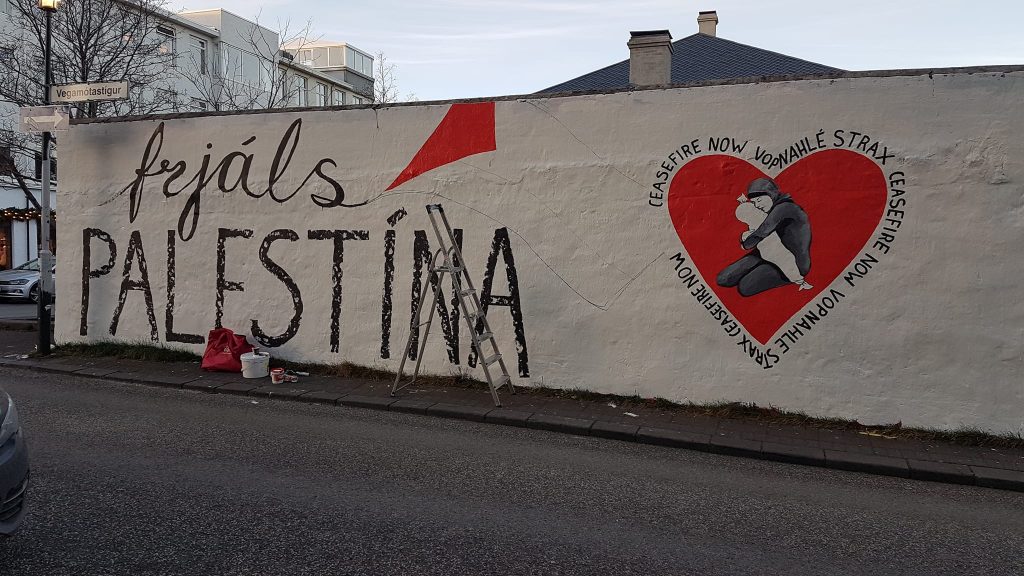 Vegamótastígur
frjáls
PALESTÍNA
CEASEFIRE NOW VOPNAHLÉ STRAX CEASEFIRE NOW VOPNAHLÉ STRAX CEASEFIRE NOW